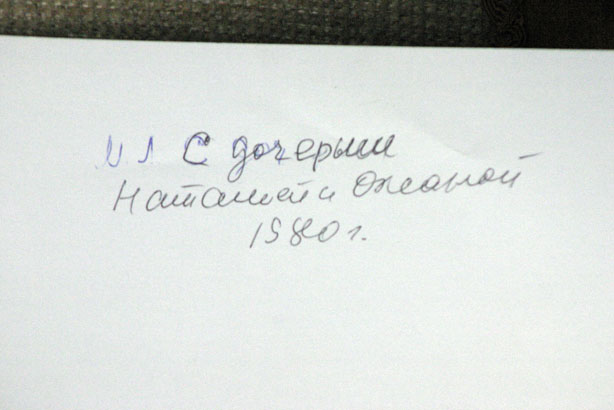 С дочерьми
Наташей и Оксаной
1980 г.